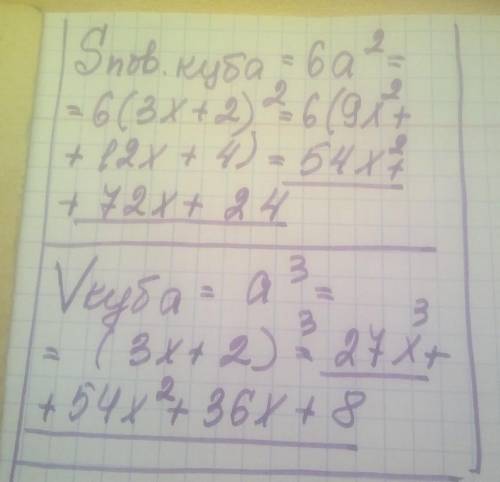 Sпов. куба = 6a² =
= 6(3x+2)² = 6(9x² +
+ 12x + 4) = 54x² +
+ 72x + 24
Vкуба = a³ =
= (3x+2)³ = 27x³ +
+ 54x² + 36x + 8